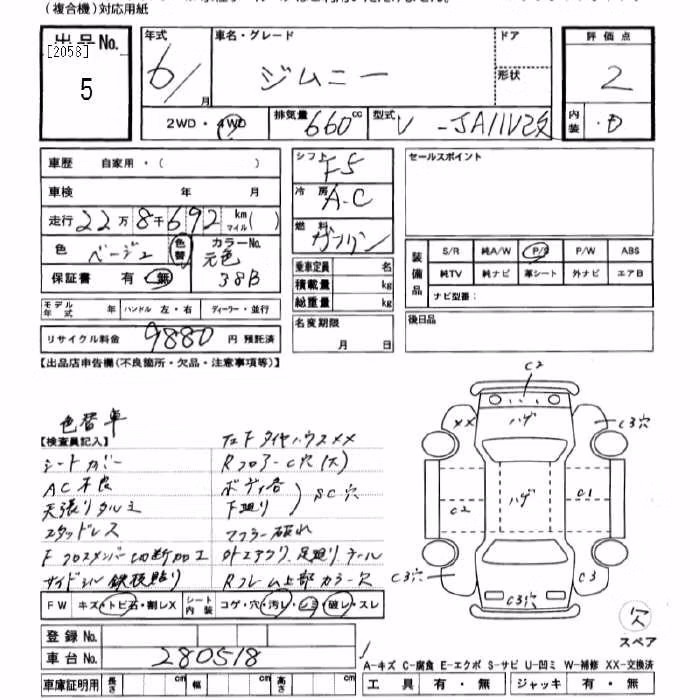 (複合機)対応用紙
出品No.
[2058]
5
年式
6/月
車名・グレード
ジムニー
ドア
形状
評価点
2
2WD・4WD
排気量 660cc
型式 V-JA11V改
内装 D
車歴 自家用・( )
シフト F5
セールスポイント
車検 年 月
冷房 A-C
走行 22万8千692km マイル( )
燃料 ガソリン
色 ベージュ 色替
カラーNo. 元色 38B
保証書 有・無
乗車定員 名
積載量 kg
総重量 kg
装備品
S/R 純A/W P/S P/W ABS
純TV 純ナビ 革シート 外ナビ エアB
ナビ型番:
モデル年式 年 ハンドル 左・右 ディーラー・並行
名変期限 月 日
後日品
リサイクル料金 9880円 預託済
【出品店申告欄(不良箇所・欠品・注意事項等)】
色替車
【検査員記入】
シートカバー
AC不良
天張りタルミ
スタッドレス
Fクロスメンバー切断加工
サイドシル鉄板貼り
左右FタイヤハウスXX
Rフロアー C穴(大)
ボディ各
下廻り
SC穴
マフラー破れ
足廻り
Rフレーム上部カラー穴
C2
XX
ハゲ
C3穴
C2
ハゲ
C1
C3穴
C3
C3穴
スペア
FW キズ・トビ石・割レX シート内装 コゲ・穴・汚レ・シミ・破レ・スレ
登録No.
車台No. 280518
A-キズ C-腐食 E-エクボ S-サビ U-凹ミ W-補修 XX-交換済
車庫証明用 長さ cm 幅 cm 高さ cm
工具 有・無 ジャッキ 有・無